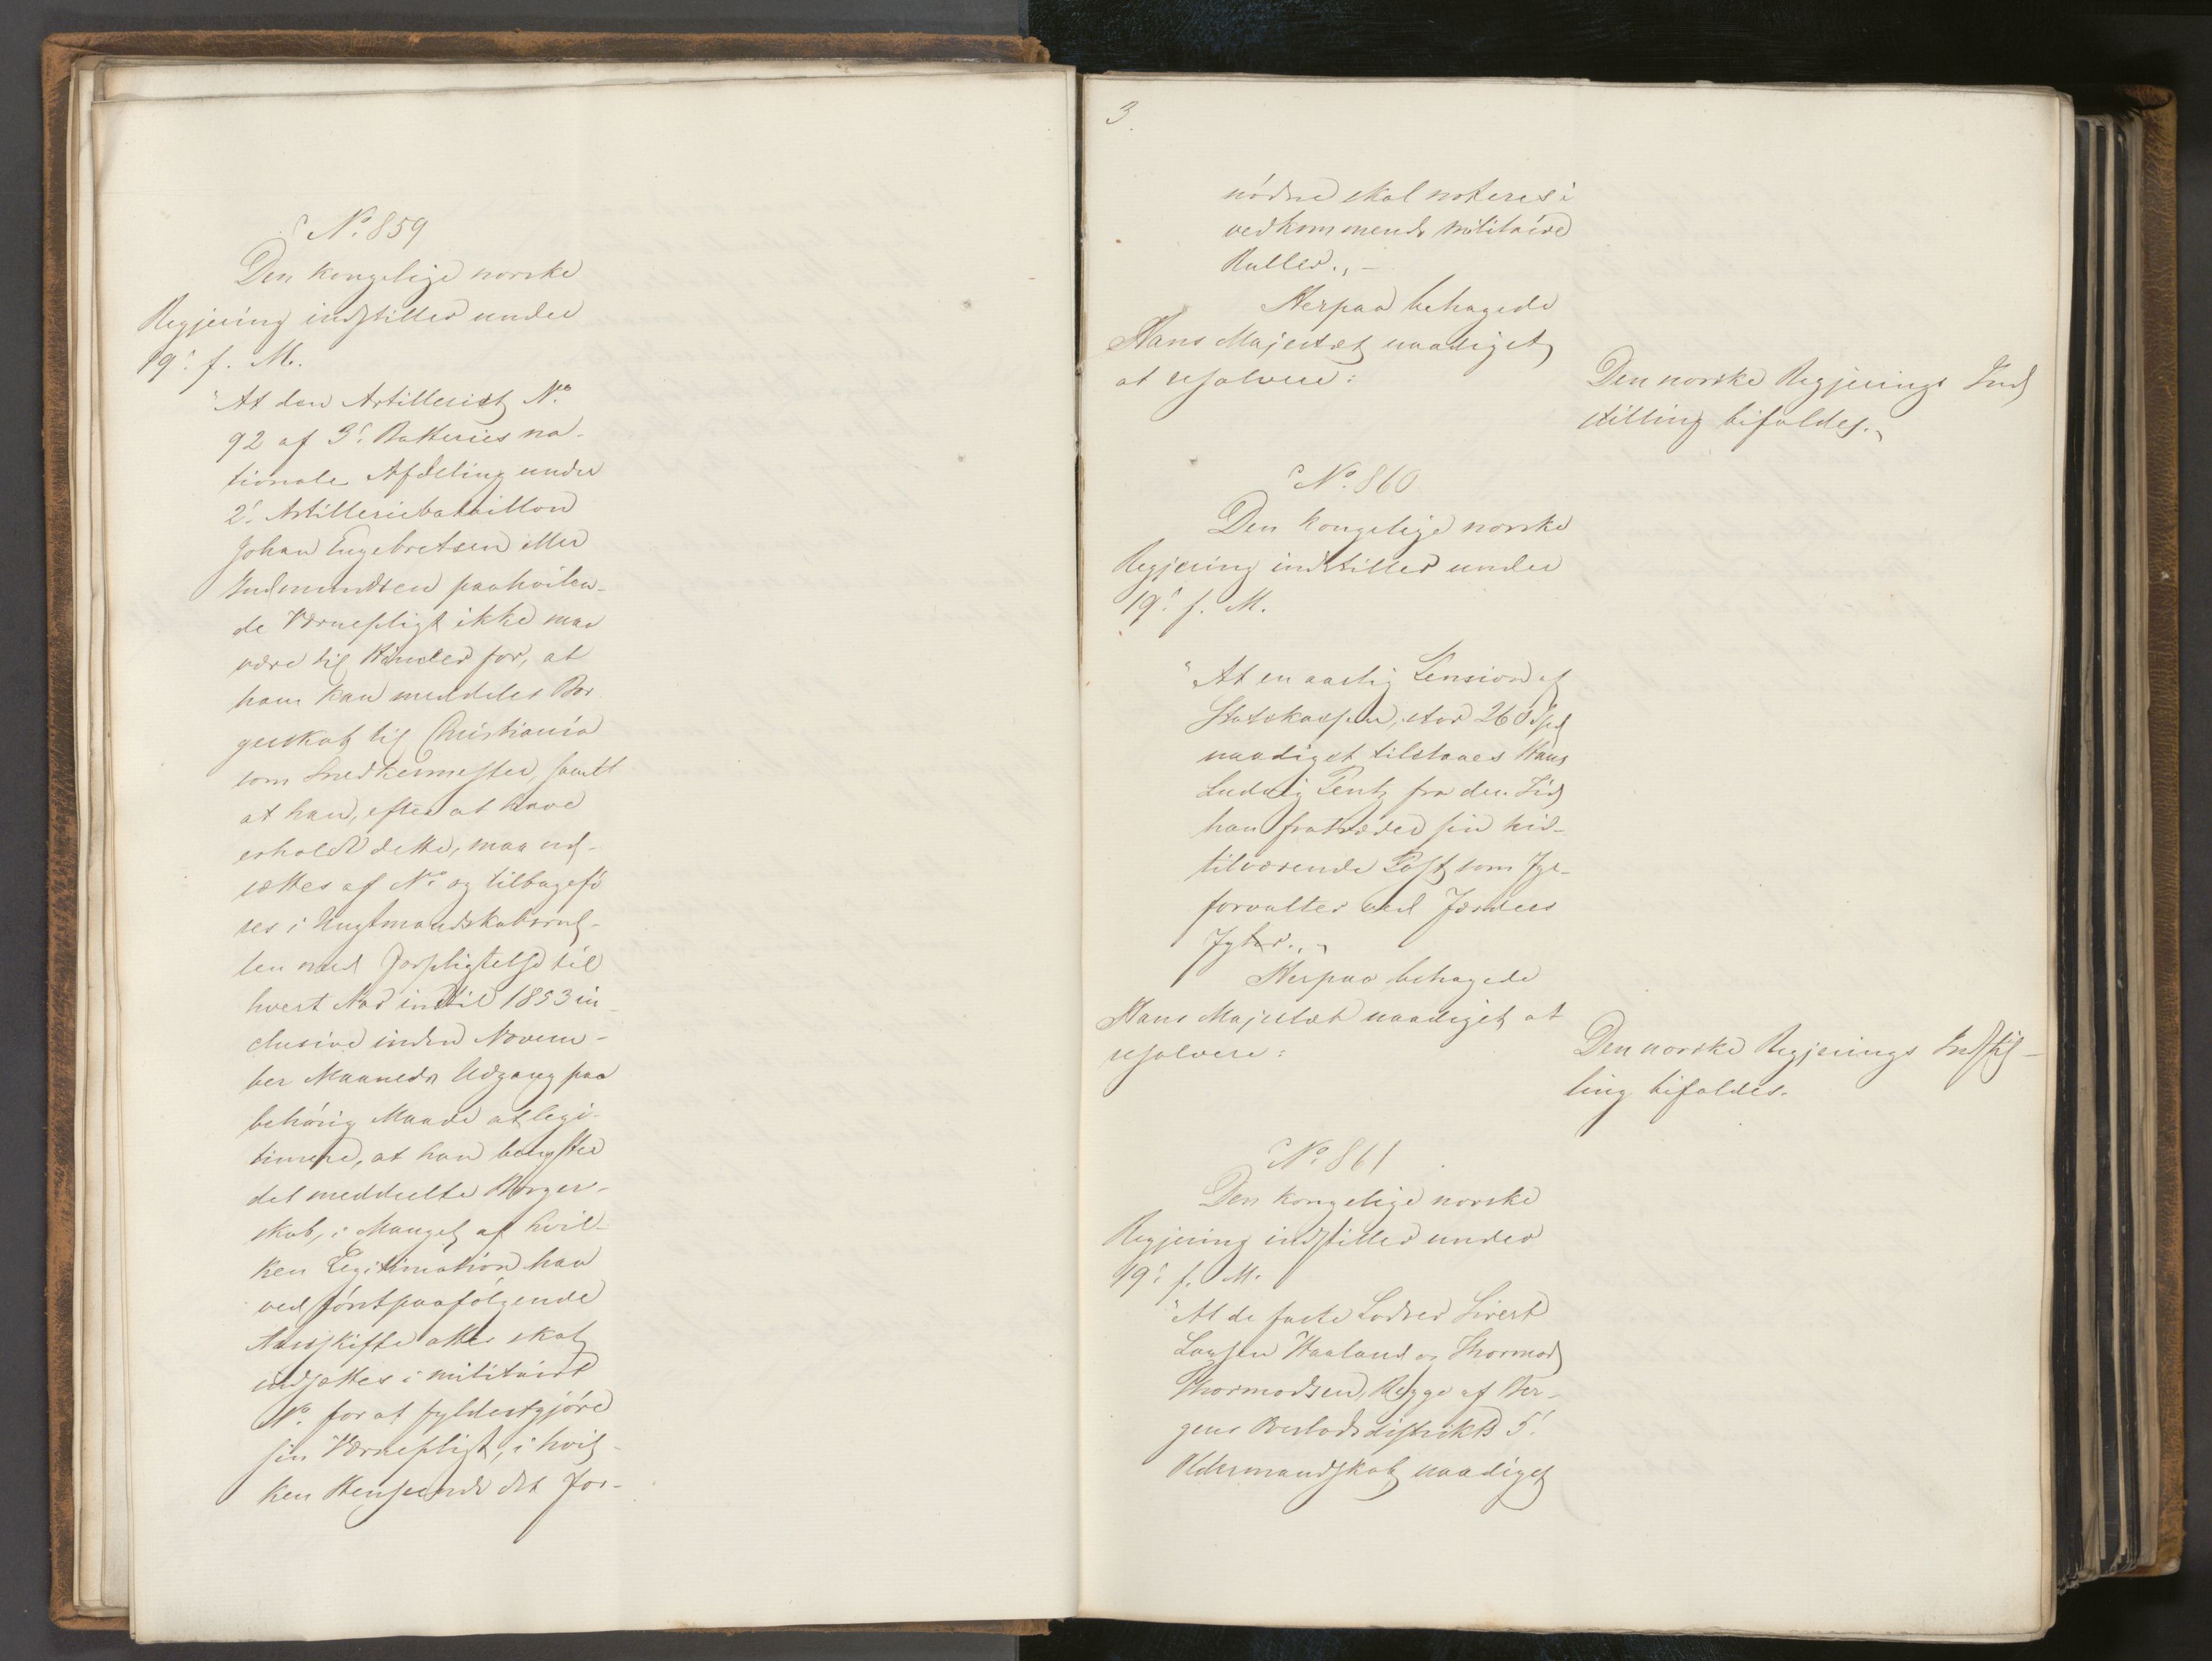 No 859
Den kongelige norske
Regjering indstiller under
19. f. M.
"At den Artillerist No
92 af 3. Batteries na-
tionale Afdeling under
2. Artilleriebataillon
Johan Engebretsen eller
Gudmundsen paahvilen-
de Værnepligt ikke maa
være til Hinder for, at
ham kan meddeles Bor
gerskab til Christiania
som Snedkermester, samt
at han, efter at have
erholdt dette, maa ud-
sættes af No og tilbagefø
res i Ungtmandskabsrul-
len med Forpligtelse til
hvert Aar indtil 1853 in-
clusive inden Novem-
ber Maaneds Udgang paa
behørig Maade at legi-
timere, at han benytter
det meddeelte Borger-
skab, i Mangel af hvil-
ken Legitimation han
ved førstpaafølgende
Aarsskifte atter skal
indsættes i militairt
No. for at fyldestgjøre
sin Værnepligt, i hvil-
ken Henseende det For-
3.
nødne skal noteres i
vedkommende militaire
Ruller." -
Herpaa behagede
Hans Majestæt naadigst
at resolvere:
Den norske Regjerings Ind
stilling bifaldes.
No. 860
Den kongelige norske
Regjering indstiller under
19. f. M.
"At en aarlig Pension af
Statskassen, stor 260 Spd
naadigst tilstaaes Hans
Ludvig Pentz fra den Tid
han fratræder sin hid-
tilværende Post som Fyr-
forvalter ved Færders
Fyr."
Herpaa behagede
Hans Majestæt naadigst at
resolvere:
Den norske Regjerings Indstil-
ling bifaldes.
No. 861
Den kongelige norske
Regjering indstiller under
19. f. M.
"At de faste Lodser Sivert
Larsen Haaland og Thormod
Thormodsen Rygge af Ber-
gens Overlodsdistrikts 5.
Oldermandskab naadigst